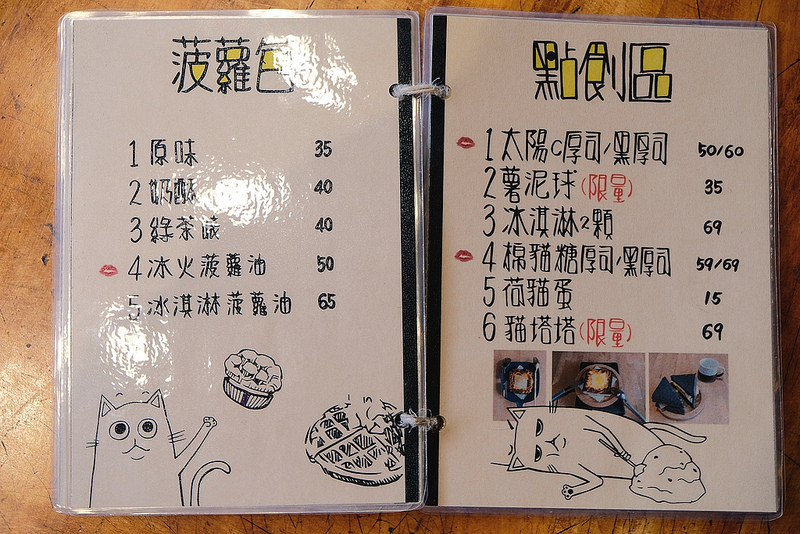 菠蘿包
1 原味 35
2 奶酥 40
3 綠茶 40
4 冰火菠蘿油 50
5 冰淇淋菠蘿油 65
點創區
1 太陽C厚司/黑厚司 50/60
2 薯泥球(限量) 35
3 冰淇淋2顆 69
4 棉貓糖厚司/黑厚司 59/69
5 荷貓蛋 15
6 貓塔塔(限量) 69